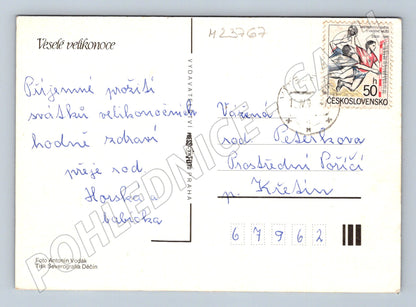 Veselé velikonoce
M23767
Příjemné prožití
svátků velikonočních
hodně zdraví
přeje rod
Horská a
babička
Foto Antonín Vodák
Tisk Severografia Děčín
PRAHA
50 h
ČESKOSLOVENSKO
Vážená
rod Peterkova
Prostřední Poříčí
p. Křetín
6 7 9 6 2
POHLEDNICE